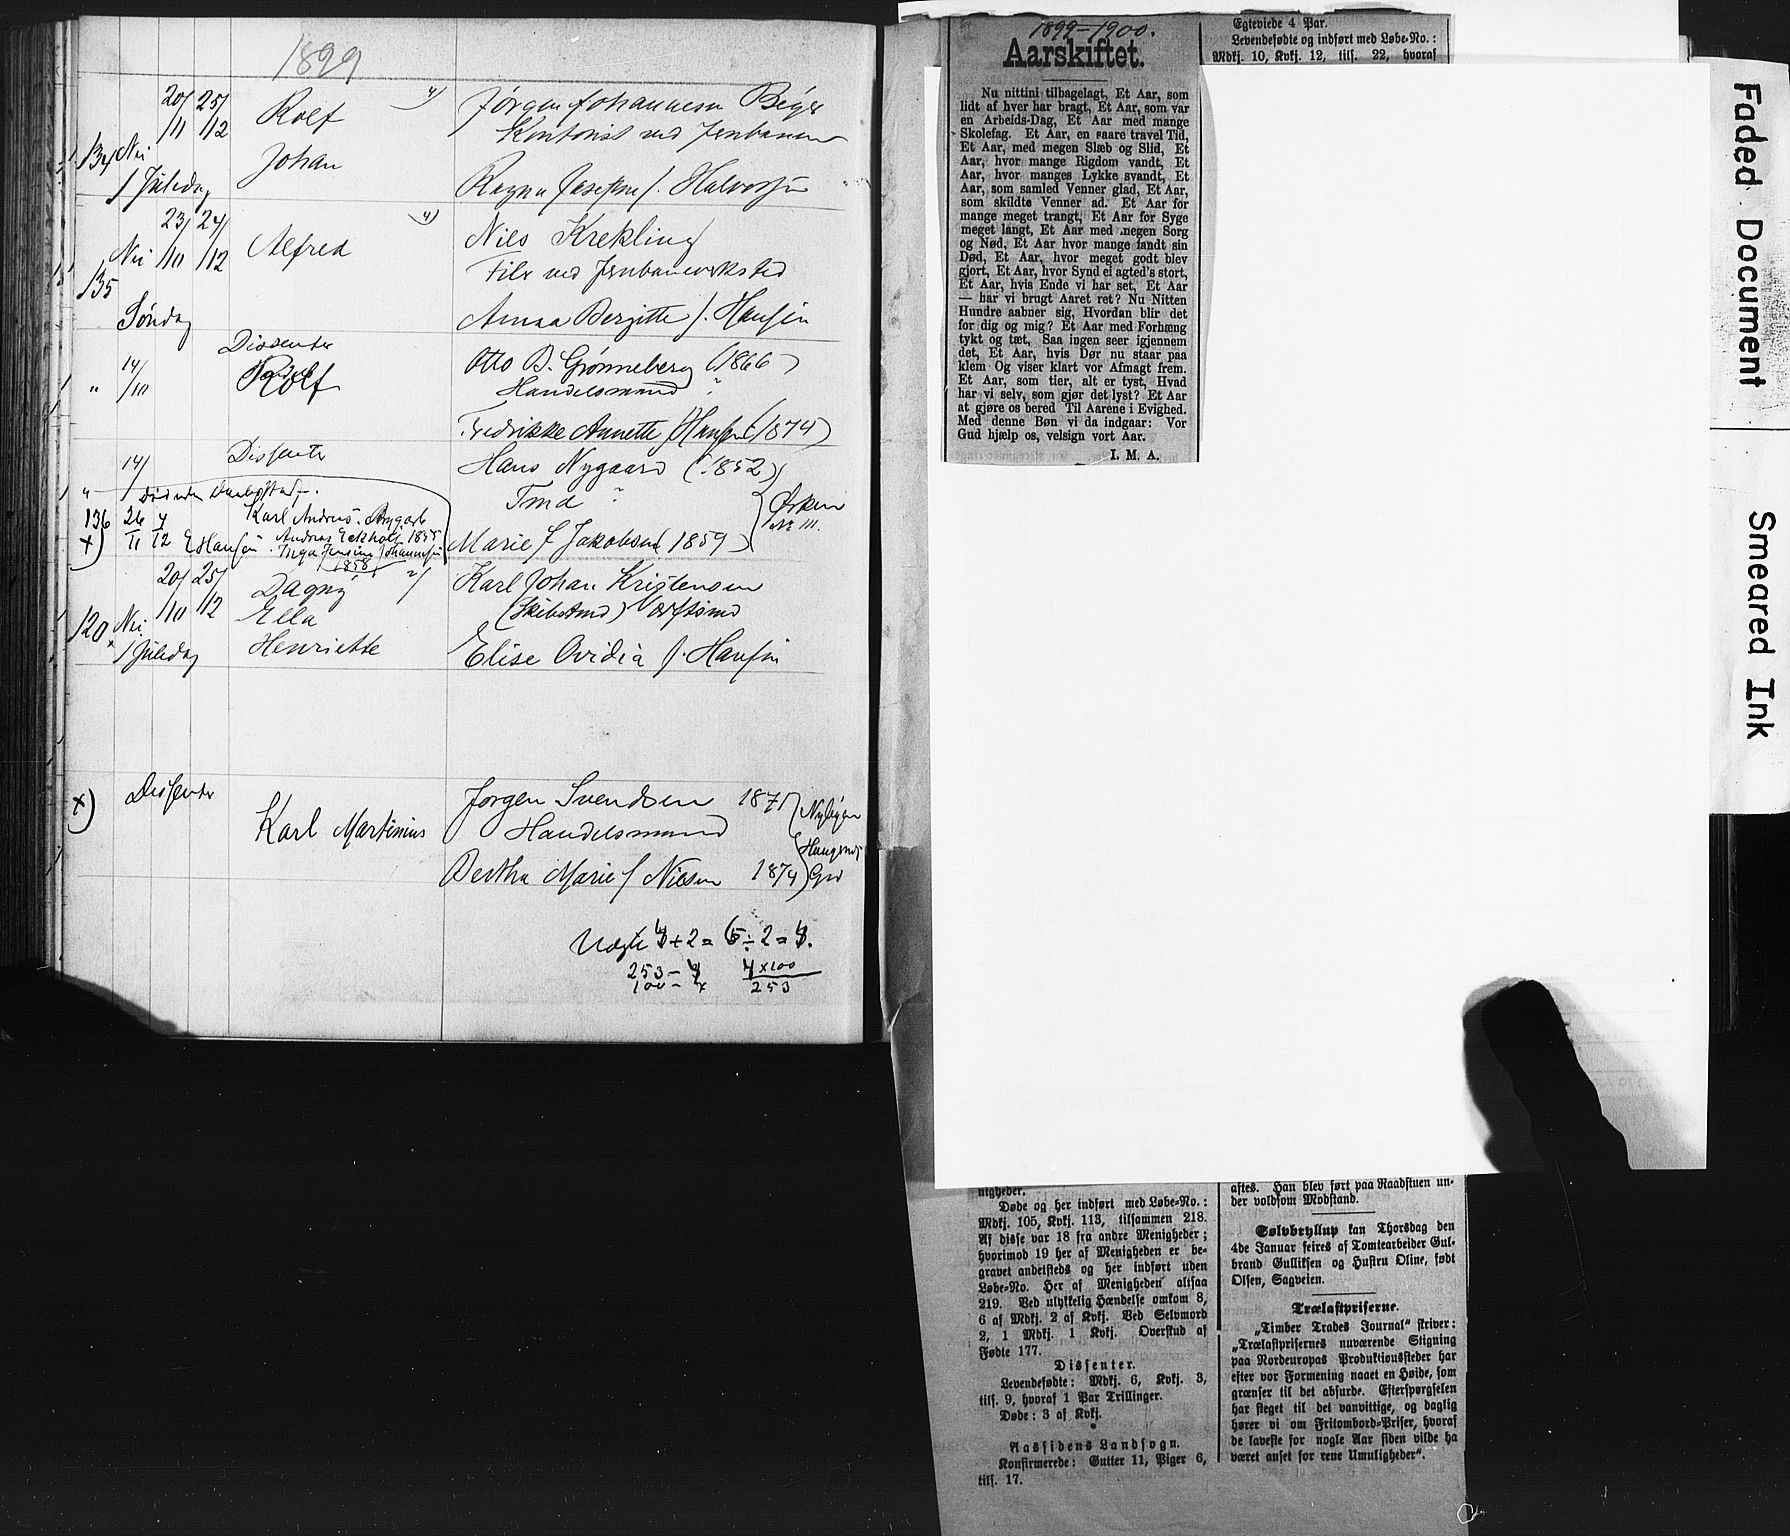 1899
20/11 25/12
Rolf 4)
Jørgen Johannesen
Kontorist ved Jernbanen
134 Nei
Johan
1 Juledag
Ragna Josefine f. Halvorsen
23/10 24/12
4)
Nils Krekling
Nei
Alfred
Filer ved Jernbaneverksted
135
Søndag
Anna Bergitte f. Hansen
Dissenter
14/10
Rolf
Otto B. Grønneberg (1866)
Handelsmand
Fredrikke Annette f. Hansen (1874)
Dissenter
14/
Hans Nygaard (1852)
Død uden Daab
Tmd
Ørken
136 26/11 4/12
Karl Andreas
x) E Hansen
Andreas Eckholt 1855
Inga Jensine Johannesen
1858
Marie f. Jakobsen 1859)
20/10 25/12
Dagny 2/
Karl Johan Kristensen
120 Nei
Ella
(Skibstmd)
1 Juledag
Henriette
Elise Ovidia f. Hansen
x) Dissenter
Jørgen Svendsen 1871
Karl Martinius
Handelsmand
Bertha Marie f. Nilsen 1874
253
100
4x100
253
1899-1900.
Aarskiftet.
Nu nittini tilbagelagt, Et Aar, som
lidt af hver har bragt, Et Aar, som var
en Arbeids-Dag, Et Aar med mange
Skolefag. Et Aar, en saare travel Tid,
Et Aar, med megen Slæb og Slid, Et
Aar, hvor mange Rigdom vandt, Et
Aar, hvor manges Lykke svandt, Et
Aar, som samled Venner glad, Et Aar,
som skildte Venner ad. Et Aar for
mange meget trangt, Et Aar for Syge
meget langt, Et Aar med megen Sorg
og Nød, Et Aar hvor mange fandt sin
Død, Et Aar, hvor meget godt blev
gjort, Et Aar, hvor Synd ei agted's stort,
Et Aar, hvis Ende vi har set, Et Aar
— har vi brugt Aaret ret? Nu Nitten
Hundre aabner sig, Hvordan blir det
for dig og mig? Et Aar med Forhæng
tykt og tæt, Saa ingen seer igjennem
det, Et Aar, hvis Dør nu staar paa
klem Og viser klart vor Afmagt frem.
Et Aar, som tier, alt er tyst, Hvad
har vi selv, som gjør det lyst? Et Aar
at gjøre os bered Til Aarene i Evighed.
Med denne Bøn vi da indgaar: Vor
Gud hjælp os, velsign vort Aar.
I. M. A.
Egteviede 4 Par.
Levendefødte og indført med Løbe-No.:
Mdkj. 10, Kvkj. 12, tils. 22, hvoraf
nigheder.
Døde og her indført med Løbe-No.:
Mdkj. 105, Kvkj. 113, tilsammen 218.
Af disse var 18 fra andre Menigheder;
hvorimod 19 her af Menigheden er be-
gravet andetsteds og her indført uden
Løbe-No. Her af Menigheden altsaa
219. Ved ulykkelig Hændelse omkom 8,
6 af Mdkj. 2 af Kvkj. Ved Selvmord
2, 1 Mdkj. 1 Kvkj. Overskud af
Fødte 177.
Dissenter.
Levendefødte: Mdkj. 6, Kvkj. 3,
tils. 9, hvoraf 1 Par Trillinger.
Døde: 3 af Kvkj.
Aassidens Landsogn.
Konfirmerede: Gutter 11, Piger 6,
tils. 17.
aftes. Han blev ført paa Raadstuen un-
der voldsom Modstand.
Sølvbryllup kan Thorsdag den
4de Januar feires af Tomtearbeider Gul-
brand Gulliksen og Hustru Oline, født
Olsen, Sagveien.
Trælastpriserne.
„Timber Trades Journal“ skriver:
„Trælastprisernes nuværende Stigning
paa Nordeuropas Produktionssteder har
efter vor Formening naaet en Høide, som
grænser til det absurde. Efterspørgselen
har steget til det vanvittige, og daglig
hører vi om Fritombord-Priser, hvoraf
de laveste for nogle Aar siden vilde ha
været anset for rene Umuligheder“.
Faded Document
Smeared Ink